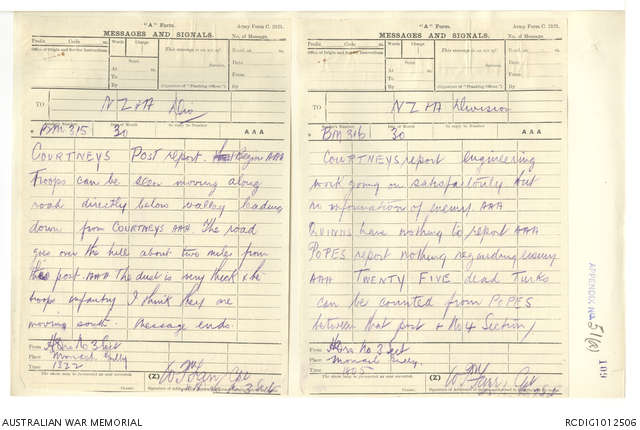 "A" Form.
MESSAGES AND SIGNALS.
Army Form C. 2121.
No. of Message
Prefix Code m.
Words
Charge
This message is on a/c of:
Recd. at m.
Office of Origin and Service Instructions
Sent
Date
At m.
From
To
By
By
(Signature of "Franking Officer.")
TO
NZ & A Div
Sender's Number
Day of Month
In reply to Number
AAA
BM 315
30
COURTNEYS Post report. Begin AAA
Troops can be seen moving along
road directly below valley leading
down from COURTNEYS AAA The road
goes over the hill about two miles from
this post AAA The dust is very thick & the
troops infantry I think they are
moving south. Message ends.
From
Hdqrs No 3 Sect
Place
Monash Gully
Time
1322
The above may be forwarded as now corrected.
(Z)
Censor.
"A" Form.
MESSAGES AND SIGNALS.
Army Form C. 2121.
No. of Message
Prefix Code m.
Words
Charge
This message is on a/c of:
Recd. at m.
Office of Origin and Service Instructions
Sent
Date
At m.
From
To
By
By
(Signature of "Franking Officer.")
TO
NZ & A Division
Sender's Number
Day of Month
In reply to Number
AAA
BM 316
30
COURTNEYS report engineering
work going on satisfactorily but
no information of enemy AAA
QUINNS have nothing to report AAA
POPES report nothing regarding enemy
AAA TWENTY FIVE dead Turks
can be counted from POPES
between that post & No 4 Section
From
Hdqrs No 3 Sect
Place
Monash Gully
Time
1405
(Z)
APPENDIX No. 51(a)
109
AUSTRALIAN WAR MEMORIAL
RCDIG1012506